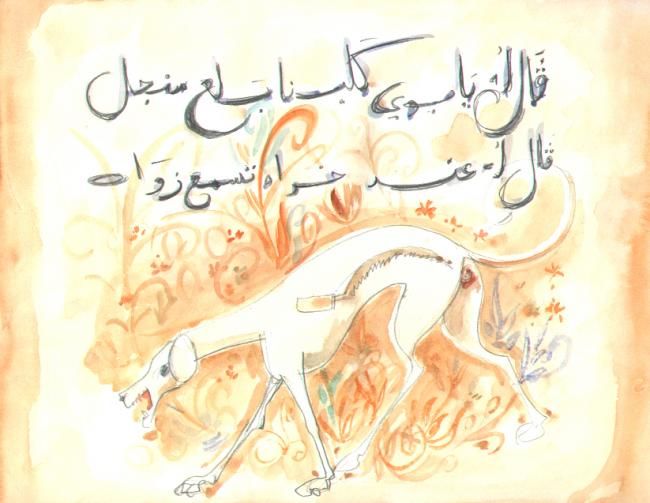 قَال لُه يَابوي كلبنا بَلع منجل
قال لُه عند خراه تسمع زوَاه